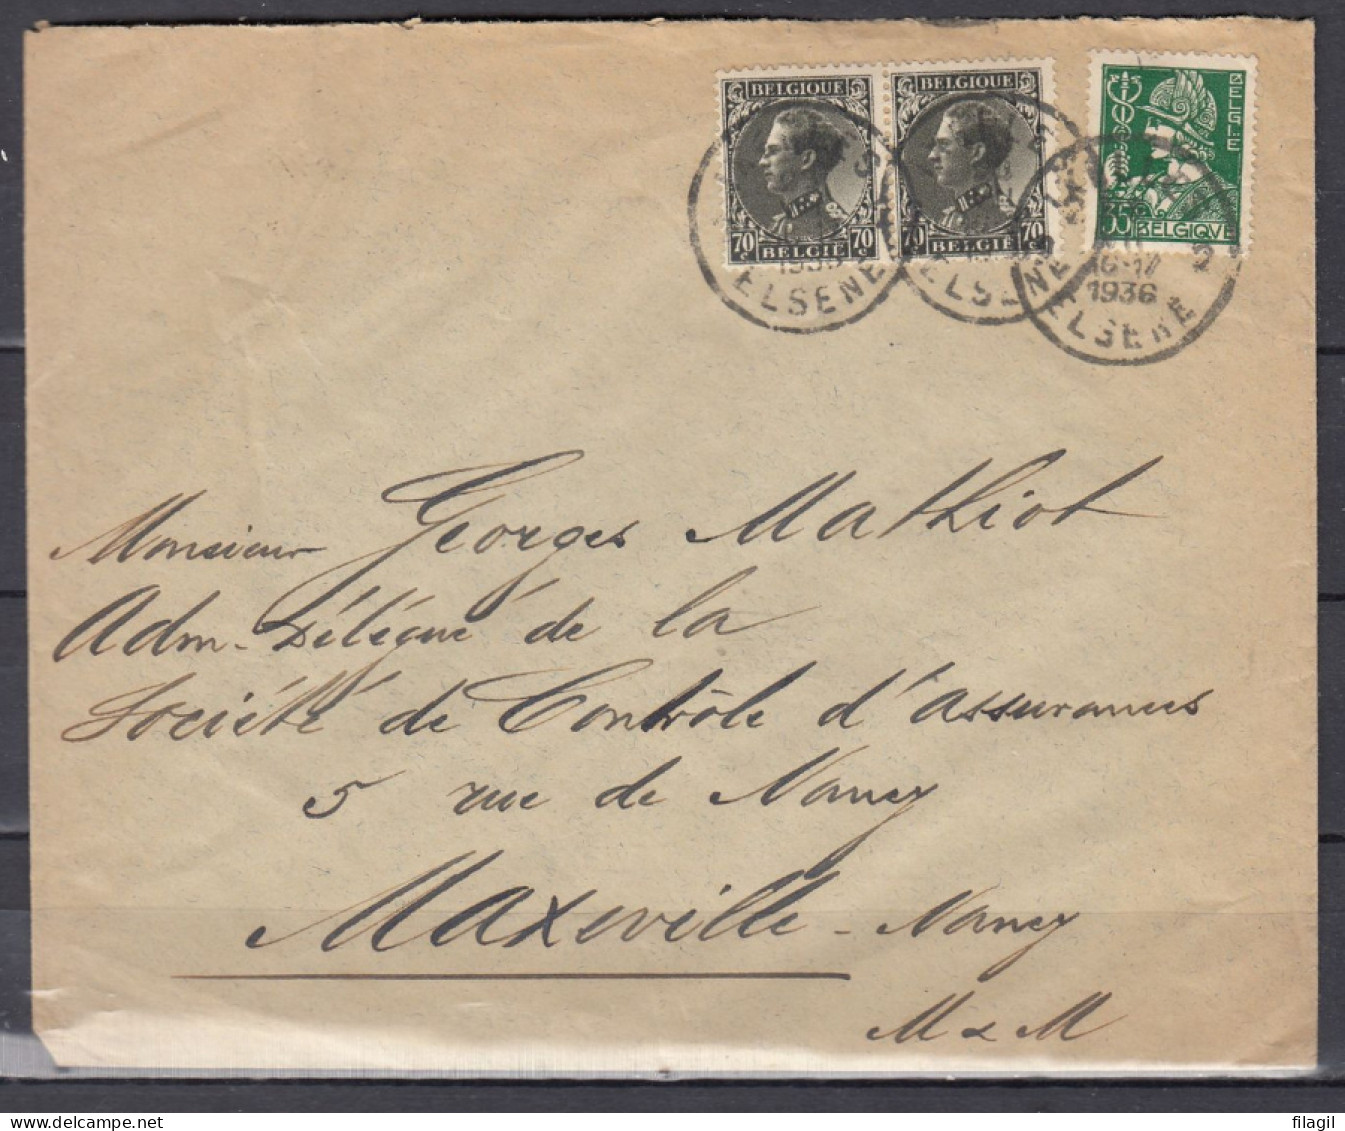 BELGIQUE
70 BELGIË 70
C C
BELGIQUE
70 BELGIË 70
C C
BELGIË
35 BELGIQVE
ELSENE
ELSENE
16-17
1936
ELSENE
2
Monsieur Georges Mathiot
Adm. Délégué de la
Société de Contrôle d'assurances
5 rue de Nancy
Maxeville - Nancy
M & M
filagil